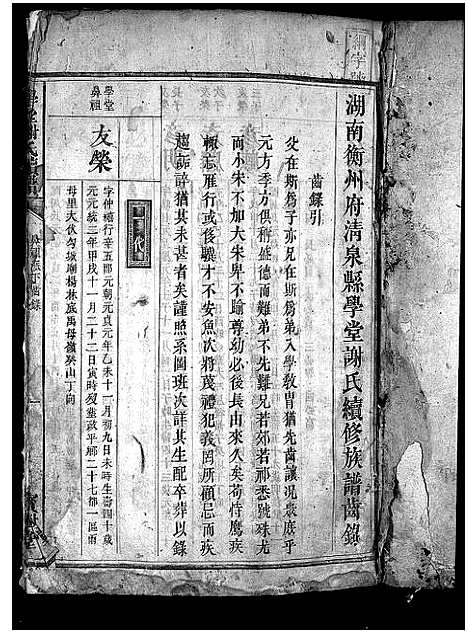 湖南衡州府清泉縣學堂謝氏續修族譜齒錄
齒錄引
父在斯為子亦兄在斯為弟入學敎胄猶先齒讓況衰庶乎
元方季方俱稱盛德而難弟不先難兄若郊若祁悉號殊尤
而小宋不加大宋卑不踰尊幼必後長由來久矣苟恃鷹疾
輒忘雁行或後驥才不安魚次將蔑禮犯義罔所顧忌而疾
趨詬誶猶其未甚者矣謹照系圖班次詳其生配卒葬以錄
一代
學堂鼻祖
友榮
字仲禧行辛五郎元朝元貞元年乙未十一月初九日未時生壽四十歲
元元統二年甲戌十一月二十二日寅時歿葬政平鄉二十七都一區雨
母里大伏勾城廟楊林底禹母嶺癸山丁向